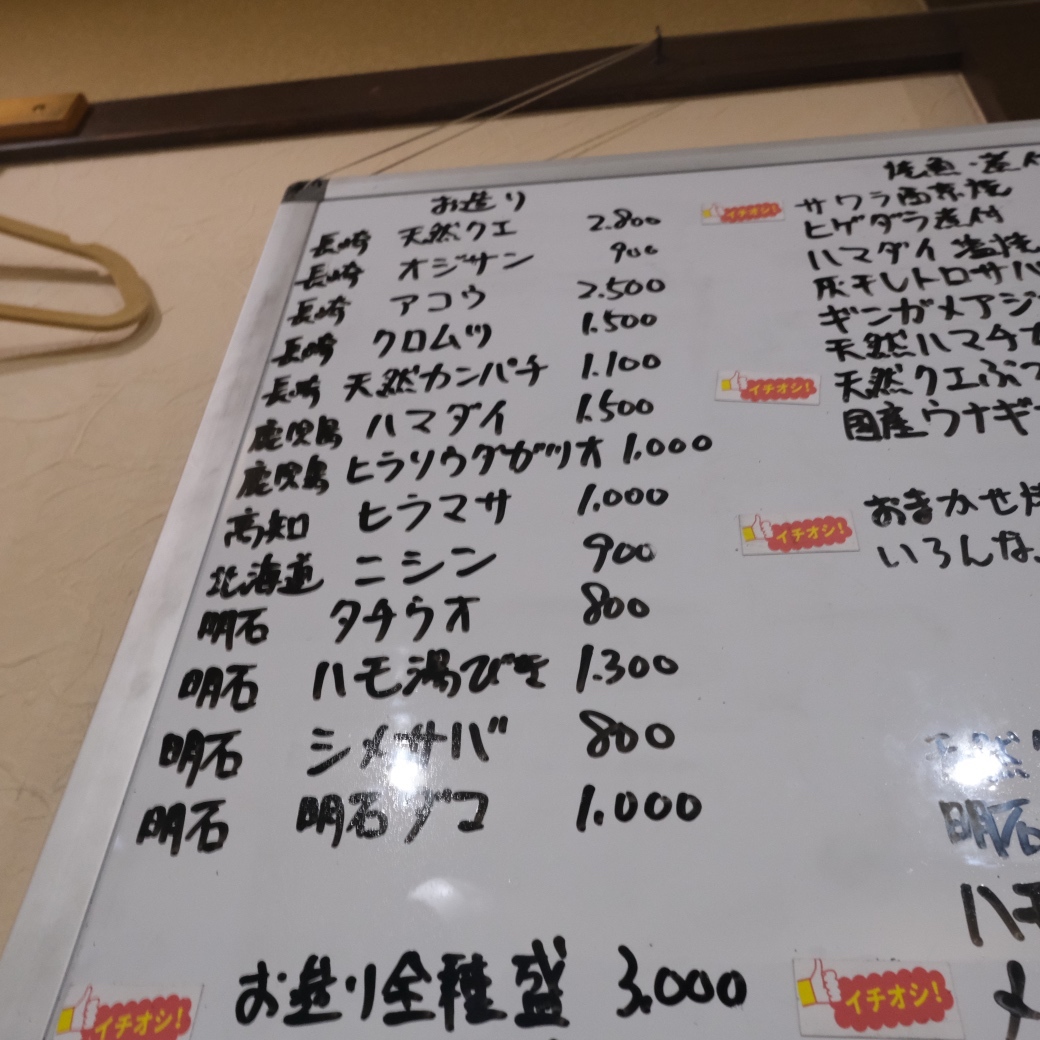 お造り
長崎 天然クエ 2.800
長崎 オジサン 900
長崎 アコウ 2.500
長崎 クロムツ 1.500
長崎 天然カンパチ 1.100
鹿児島 ハマダイ 1.500
鹿児島 ヒラソウダガツオ 1.000
高知 ヒラマサ 1.000
北海道 ニシン 900
明石 タチウオ 800
明石 ハモ湯びき 1.300
明石 シメサバ 800
明石 明石ダコ 1.000
イチオシ! お造り全種盛 3.000
焼魚・煮付
イチオシ! サワラ西京焼
ヒゲダラ煮付
ハマダイ 塩焼
灰干しトロサバ
ギンガメアジ
天然ハマチ
イチオシ! 天然クエぶつ
国産ウナギ
おまかせ
イチオシ! いろんな
天然
明石
ハモ
イチオシ!